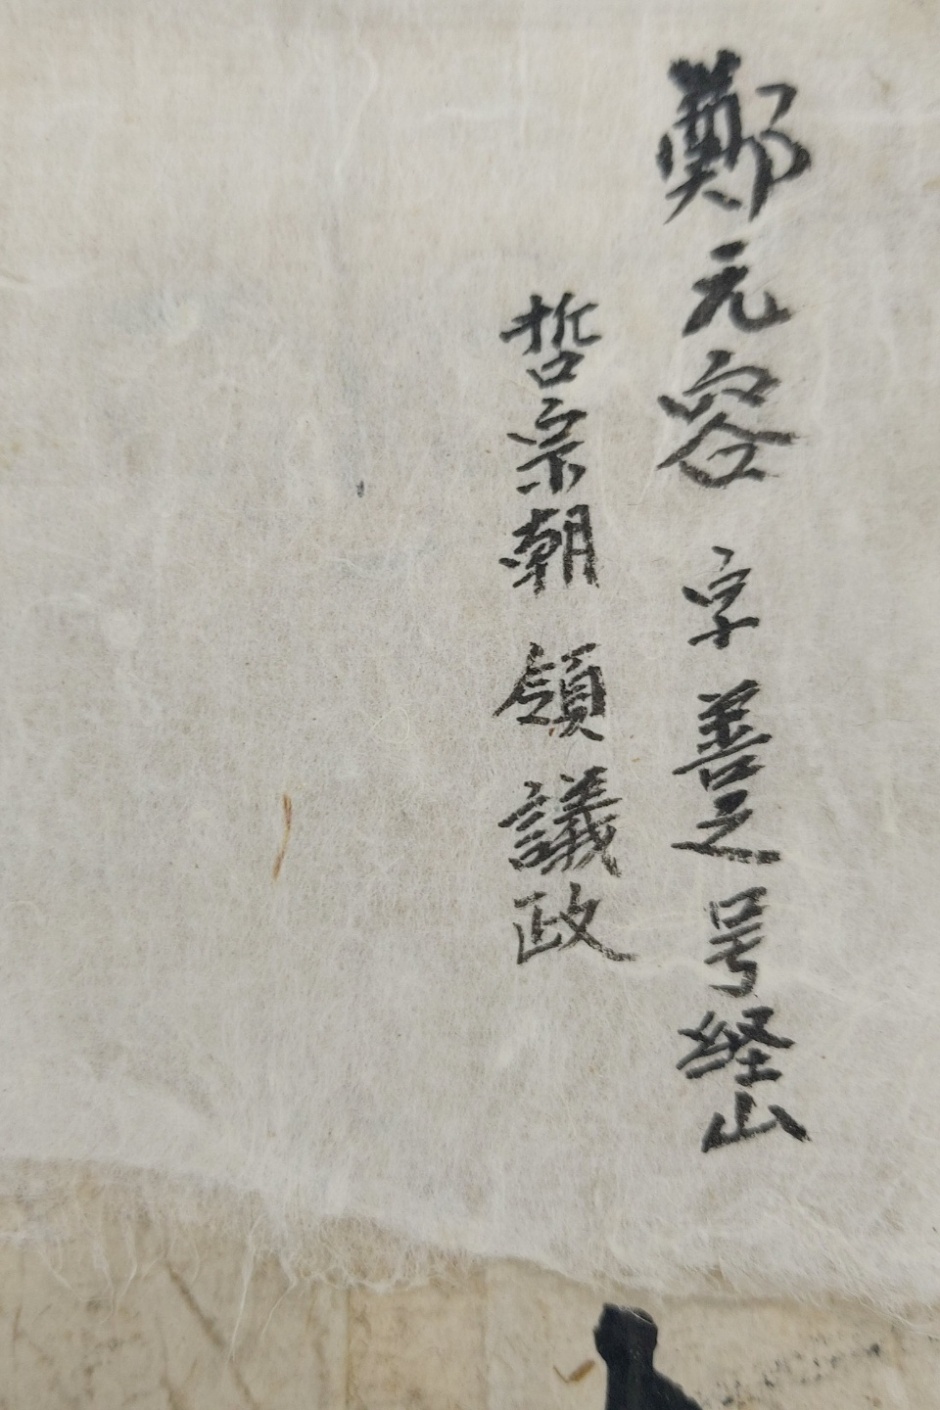 鄭元容 字善之号経山
哲宗朝 領議政